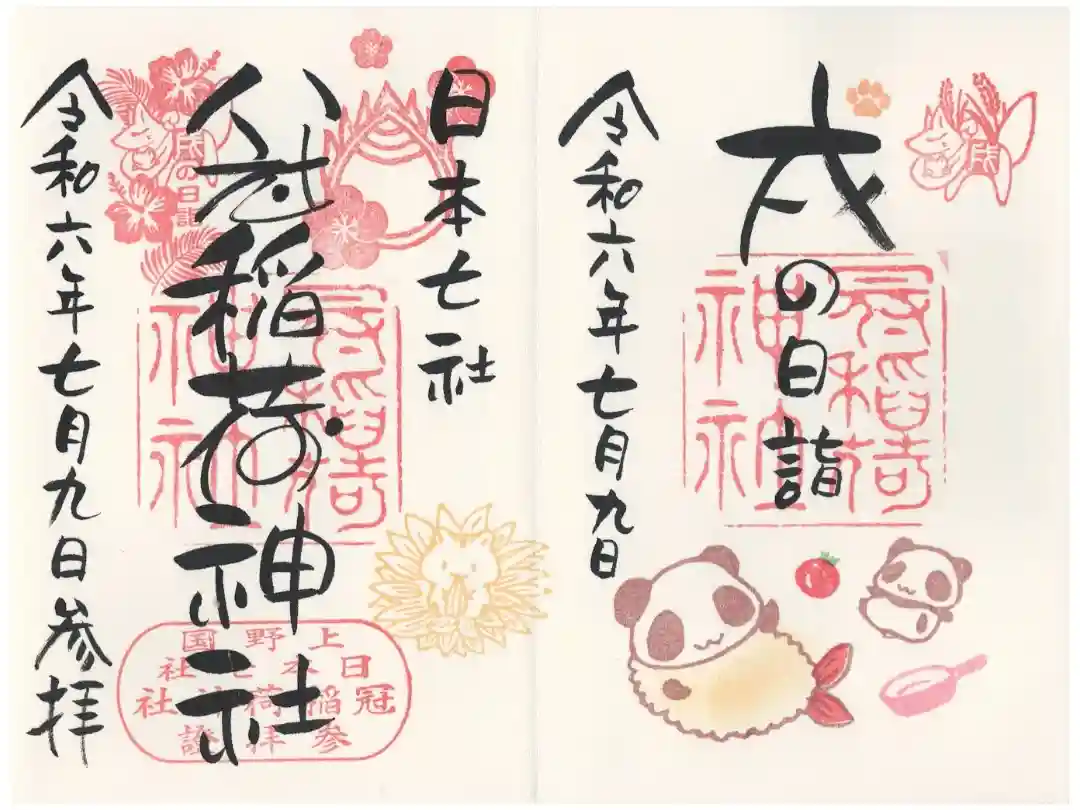 戌の日詣
令和六年七月九日
戌
冠稲荷
神社
日本七社
冠稲荷神社
令和六年七月九日参拝
戌の日詣
冠稲荷
神社
上野国
日本七社
冠稲荷神社
参拝證